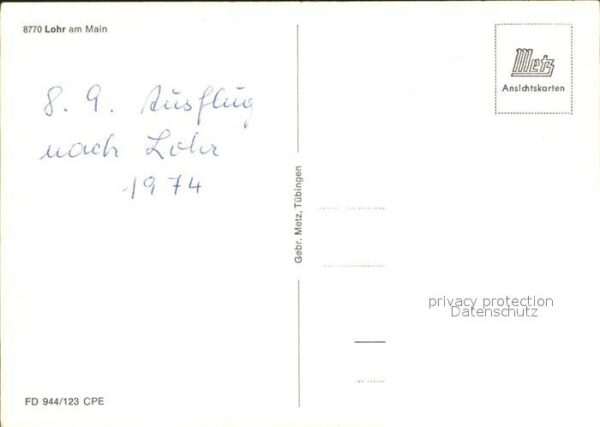 8770 Lohr am Main
Metz
Ansichtskarten
8. 9. Ausflug
nach Lohr
1974
Gebr. Metz, Tübingen
privacy protection
Datenschutz
FD 944/123 CPE